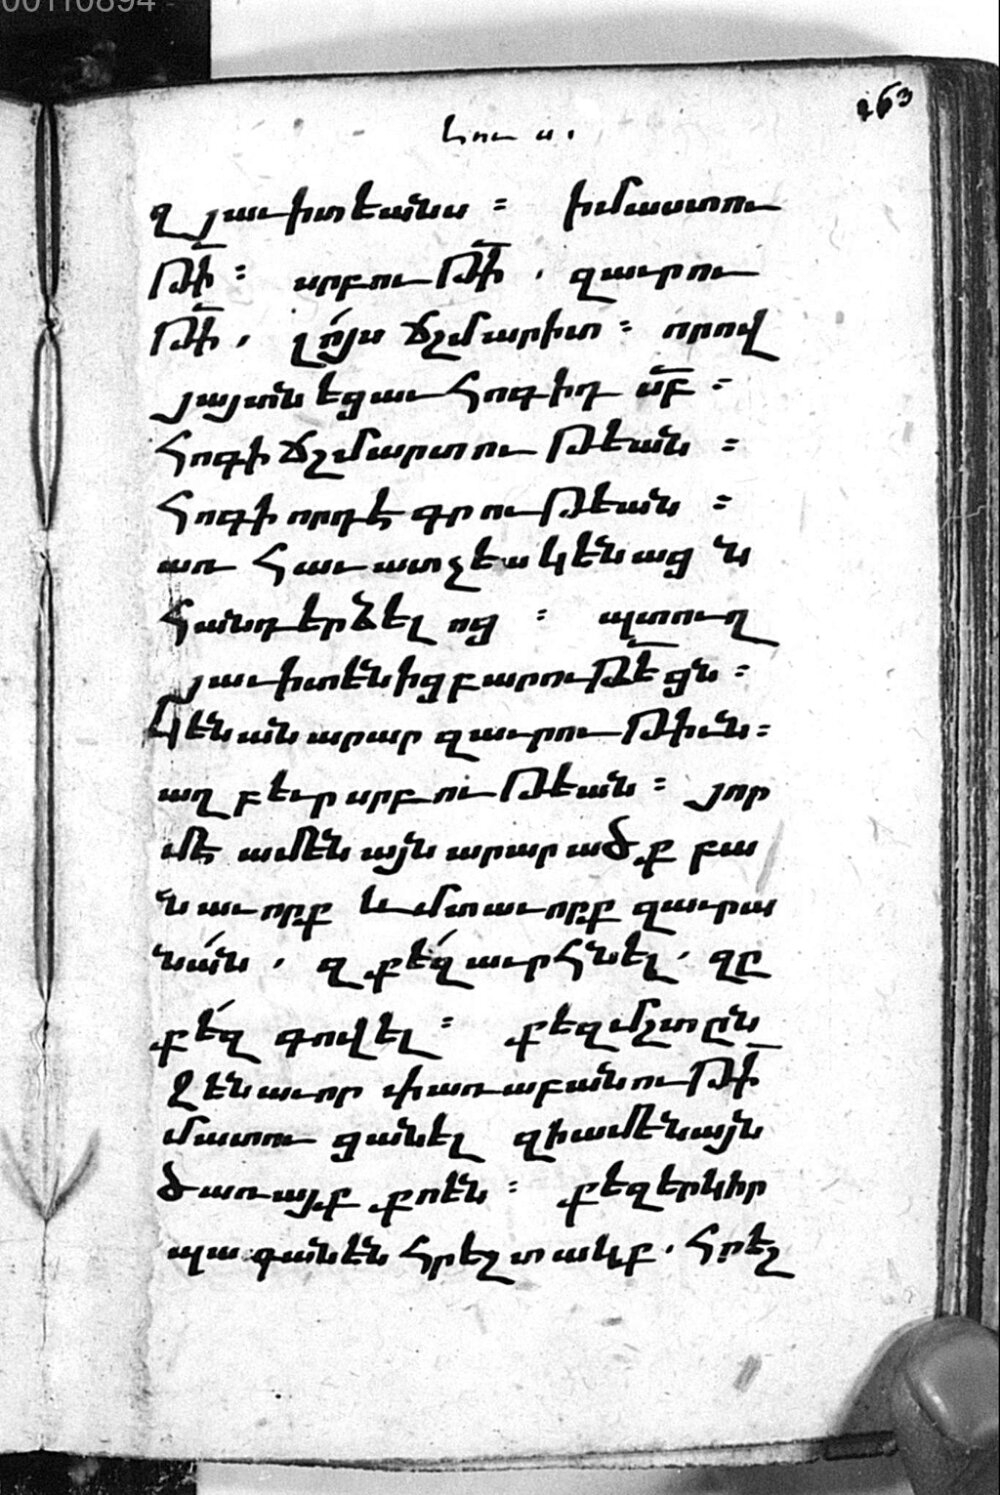 00110894
263
կու ա.
զյաւիտեանս ։ իմաստու
թի՟ ։ սրբութի՟ . զաւրու
թի՟ , լո՛յս ճշմարիտ ։ որով
յայտնեցաւ Հոգիդ սբ՟ ։
Հոգի ճշմարտութեան ։
Հոգի որդէգրութեան ։
առ Հաւատչեա կենաց ն
Հանդերձելոց ։ պտուղ
յաւիտենից բարութե՟ցն ։
կենանարար զաւրութիւն ։
աղբեւր սրբութեան ։ յոր
մէ ամենայն արարածք բա
նաւորք և մտաւորք զաւրա
նան , զքե՛զ աւրՀնել . զը
քե՛զ գովել ։ քեզ մշտըն
ջենաւոր փառաբանութի՟
մատուցանել զի ամենայն
ծառայք քոեն ։ քեզ երկիր
պագանեն Հրեշտակք . Հրեշ